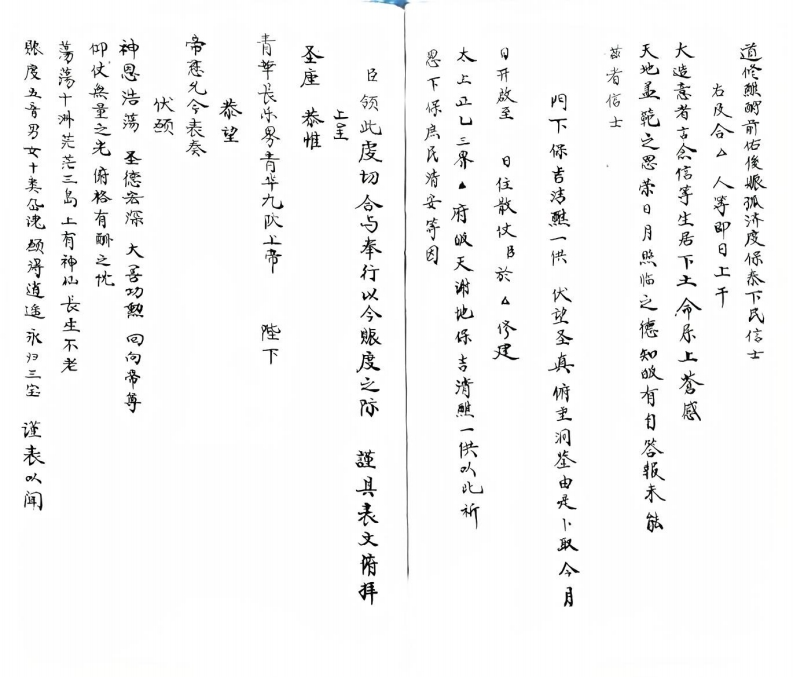 道修醮酬前佑後賑孤济度保泰下民信士
右及合△人等即日上干
大造意者言念信等生居下土命属上蒼感
天地盖載之恩荣日月照临之德知皈有自答报未能
兹者信士
門下保吉清醮一供 伏望圣真俯垂洞鉴由是卜取今月
日开啟至 日住散仗臣於△修建
太上正乙三界▲府皈天谢地保吉清醮一供以此祈
恩下保庶民清安等因
臣领此虔切合与奉行以今賑度之际 謹具表文俯拜
上呈
圣座 恭惟
青華长乐界青华九阳上帝 陛下
恭望
帝慈允令表奏
伏願
神恩浩荡 圣德宏深 大羔功勲 回向帝尊
仰仗無量之光俯格有酬之忱
荡荡十洲茫茫三岛上有神仙长生不老
賑度五音男女十类孤魂願得逍遥永归三宝 谨表以闻